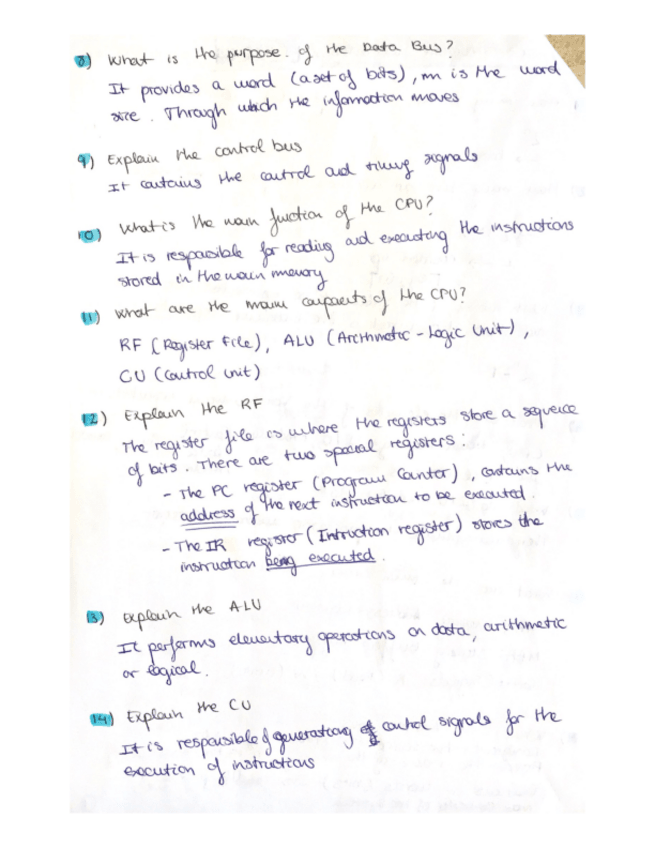 8) What is the purpose of the Data Bus?
It provides a word (a set of bits), m is the word
size. Through which the information moves
9) Explain the control bus
It contains the control and timing signals
10) What is the main function of the CPU?
It is responsible for reading and executing the instructions
stored in the main memory
11) What are the main components of the CPU?
RF (Register File), ALU (Arithmetic-Logic Unit),
CU (Control Unit)
12) Explain the RF
The register file is where the registers store a sequence
of bits. There are two special registers:
- The PC register (Program Counter), contains the
address of the next instruction to be executed.
- The IR register (Intruction register) stores the
instruction being executed.
13) Explain the ALU
It performs elementary operations on data, arithmetic
or logical.
14) Explain the CU
It is responsible of generating control signals for the
execution of instructions